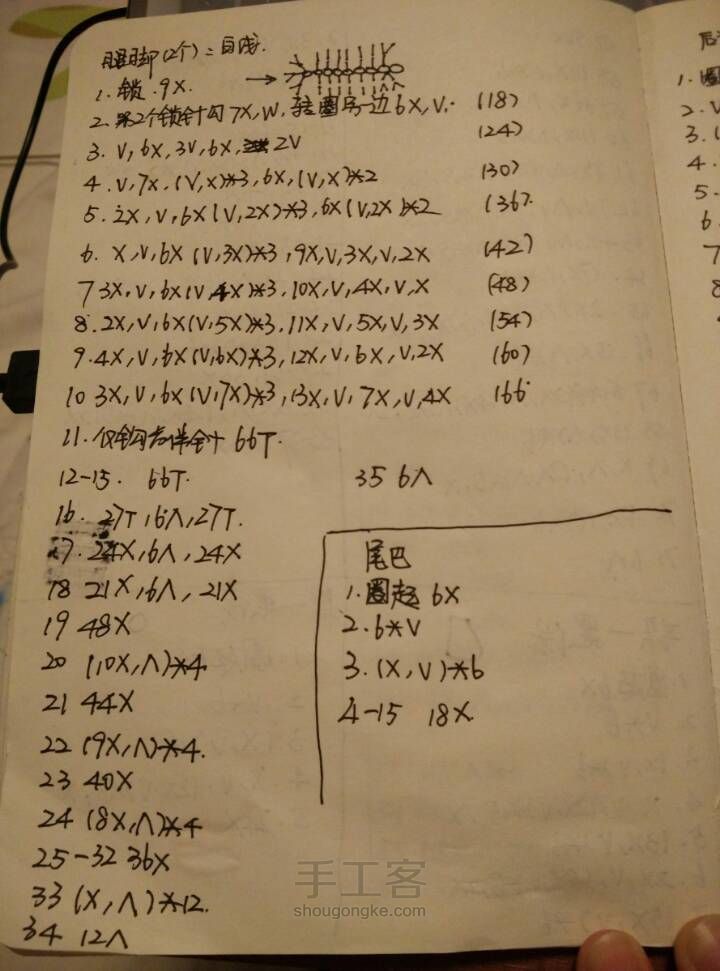 腿脚(2个):白线.
1. 锁.9X.
2. 第2个锁针勾7X,W,转圈另一边6X,V. (18)
3. V,6X,3V,6X, 2V (24)
4. V,7X.(V,X)*3,6X,(V,X)*2 (30)
5. 2X,V,6X(V,2X)*3,6X(V,2X)*2 (36)
6. X,V,6X(V,3X)*3,9X,V,3X,V,2X (42)
7 3X,V,6X(V,4X)*3,10X,V,4X,V,X (48)
8. 2X,V,6X(V,5X)*3,11X,V,5X,V,3X (54)
9. 4X,V,6X(V,6X)*3,12X,V,6X,V,2X (60)
10 3X,V,6X(V,7X)*3,13X,V,7X,V,4X (66
11. 仅钩后半针 66T.
12-15. 66T.
16. 27T,6Λ,27T.
17. 24X,6Λ,24X
18 21X,6Λ,21X
19 48X
20 (10X,Λ)*4.
21 44X
22 (9X,Λ)*4.
23 40X
24 (8X,Λ)*4
25-32 36X
33 (X,Λ)*12.
34 12Λ
35 6Λ
尾巴
1. 圈起 6X
2. 6*V
3. (X,V)*6
4-15 18X
后
1. 圈
2. V
3. (
4.
5.
6.
7
8
手工客
shougongke.com